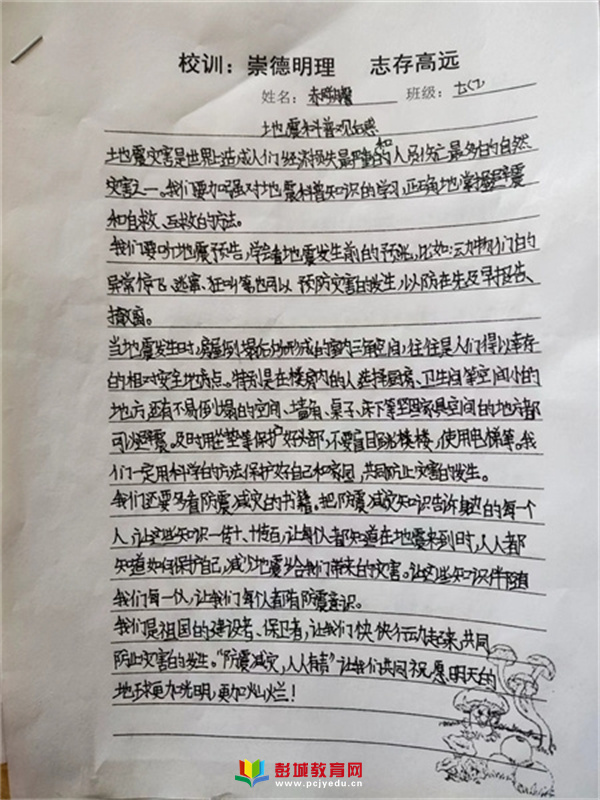 校训：崇德明理 志存高远
姓名： 班级：七(2)
地震科普观后感
地震灾害是世界上造成人们经济损失最严重的和人员伤亡最多的自然
灾害之一。我们要加强对地震科普知识的学习,正确地掌握避震
和自救、互救的方法。
我们要听地震预告,学会看地震发生前的预兆,比如:动物们的
异常惊飞、逃窜、狂叫等也可以预防灾害的发生,以防在先及早报告、
撤离。
当地震发生时,房屋倒塌后所形成的室内三角空间,往往是人们得以幸存
的相对安全地点。特别是在楼房内的人选择厨房、卫生间等空间小的
地方还有不易倒塌的空间、墙角、桌子、床下等坚固家具空间的地方都
可以避震。及时用坐垫等保护好头部,不要盲目跳楼,使用电梯等。我
们一定用科学的方法保护好自己和家园,共同防止灾害的发生。
我们还要多看防震减灾的书籍。把防震减灾知识告诉身边的每个
人,让这些知识一传十、十传百,让每个人都知道在地震来到时,人人都
知道如何保护自己,减少地震给我们带来的灾害。让这些知识伴随
我们每一个人,让我们每个人都有防震意识。
我们是祖国的建设者、保卫者,让我们快快行动起来,共同
防止灾害的发生。"防震减灾,人人有责"让我们共同祝愿明天的
地球更加光明,更加灿烂!
彭城教育网
www.pcjyedu.cn